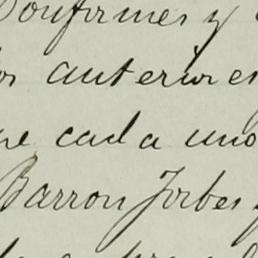 Confirmes y
os anteriores
ue cada uno
Barron Forbes y